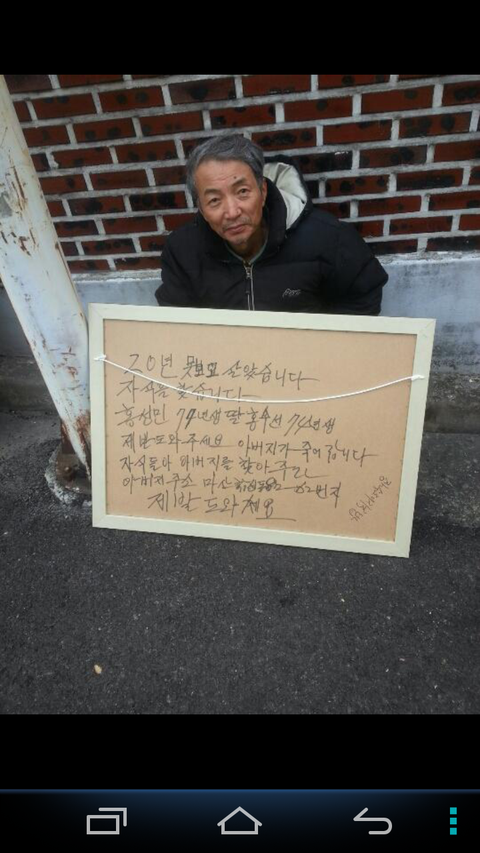 20년 못보고 살았습니다
자식을 찾습니다
홍성민 77년생 딸 홍우선 74년생
제발 도와 주세요 아버지가 죽어 갑니다
자식들아 아버지를 찾아주라
아버지 주소 마산 62번지
제발 도와주세요